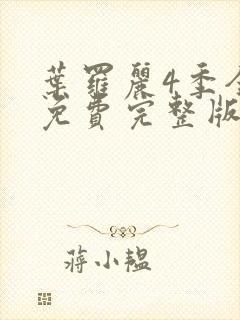 葉羅麗4季全
免費完整版
蔣小韞